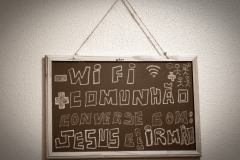 - WIFI
+ COMUNHÃO
CONVERSE COM:
JESUS E O IRMÃO